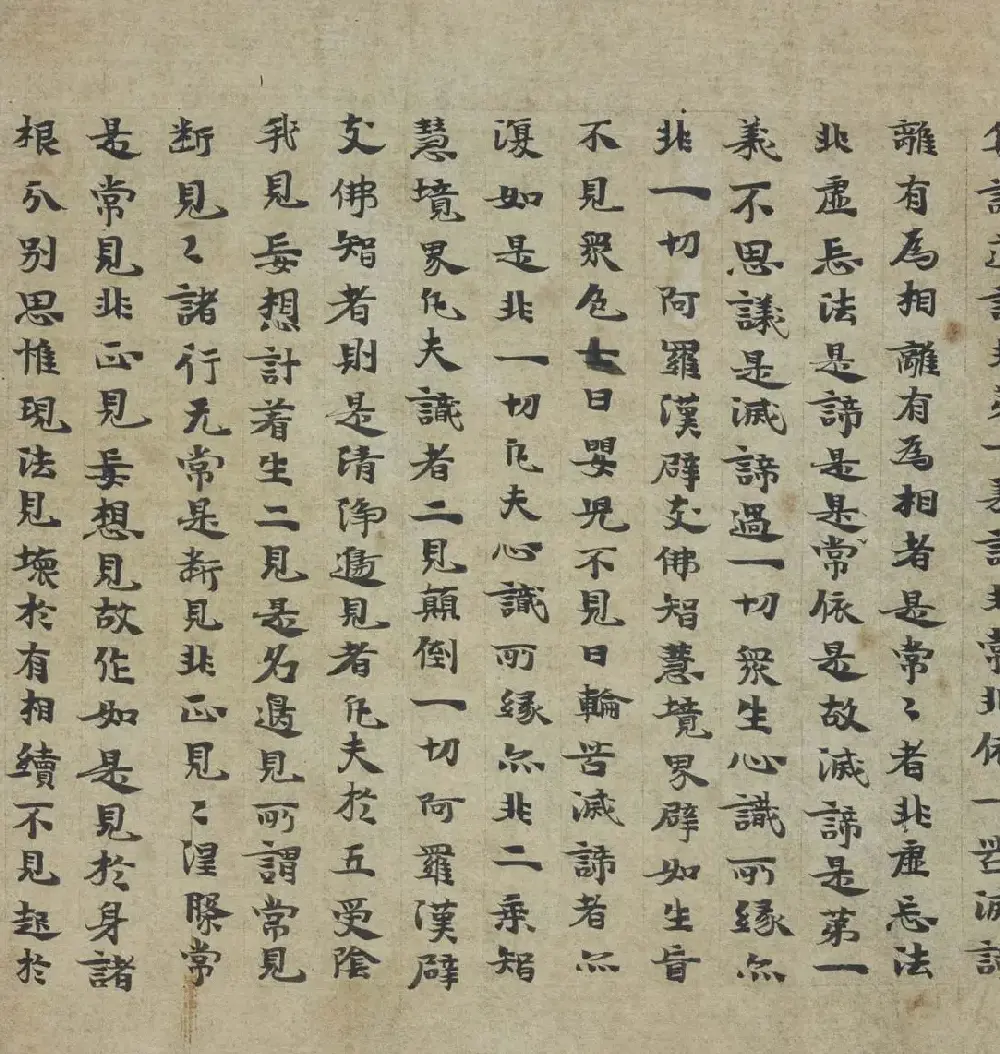 諦道諦非第一義諦非常非依一苦滅諦
離有為相離有為相者是常〻者非虛忘法
非虛忘法是諦是是常依是故滅諦是第一
義不思議是滅諦過一切眾生心識所緣亦
非一切阿羅漢辟支佛智慧境界辟如生盲
不見眾色七日嬰兒不見日輪苦滅諦者亦
復如是非一切凡夫心識所緣亦非二乘智
慧境界凡夫識者二見顛倒一切阿羅漢辟
支佛智者則是清淨邊見者凡夫於五受陰
我見妄想計着生二見是名邊見所謂常見
断見〻諸行无常是断見非正見〻涅槃常
是常見非正見妄想見故作如是見於身諸
根分别思惟現法見壞於有相續不見起於